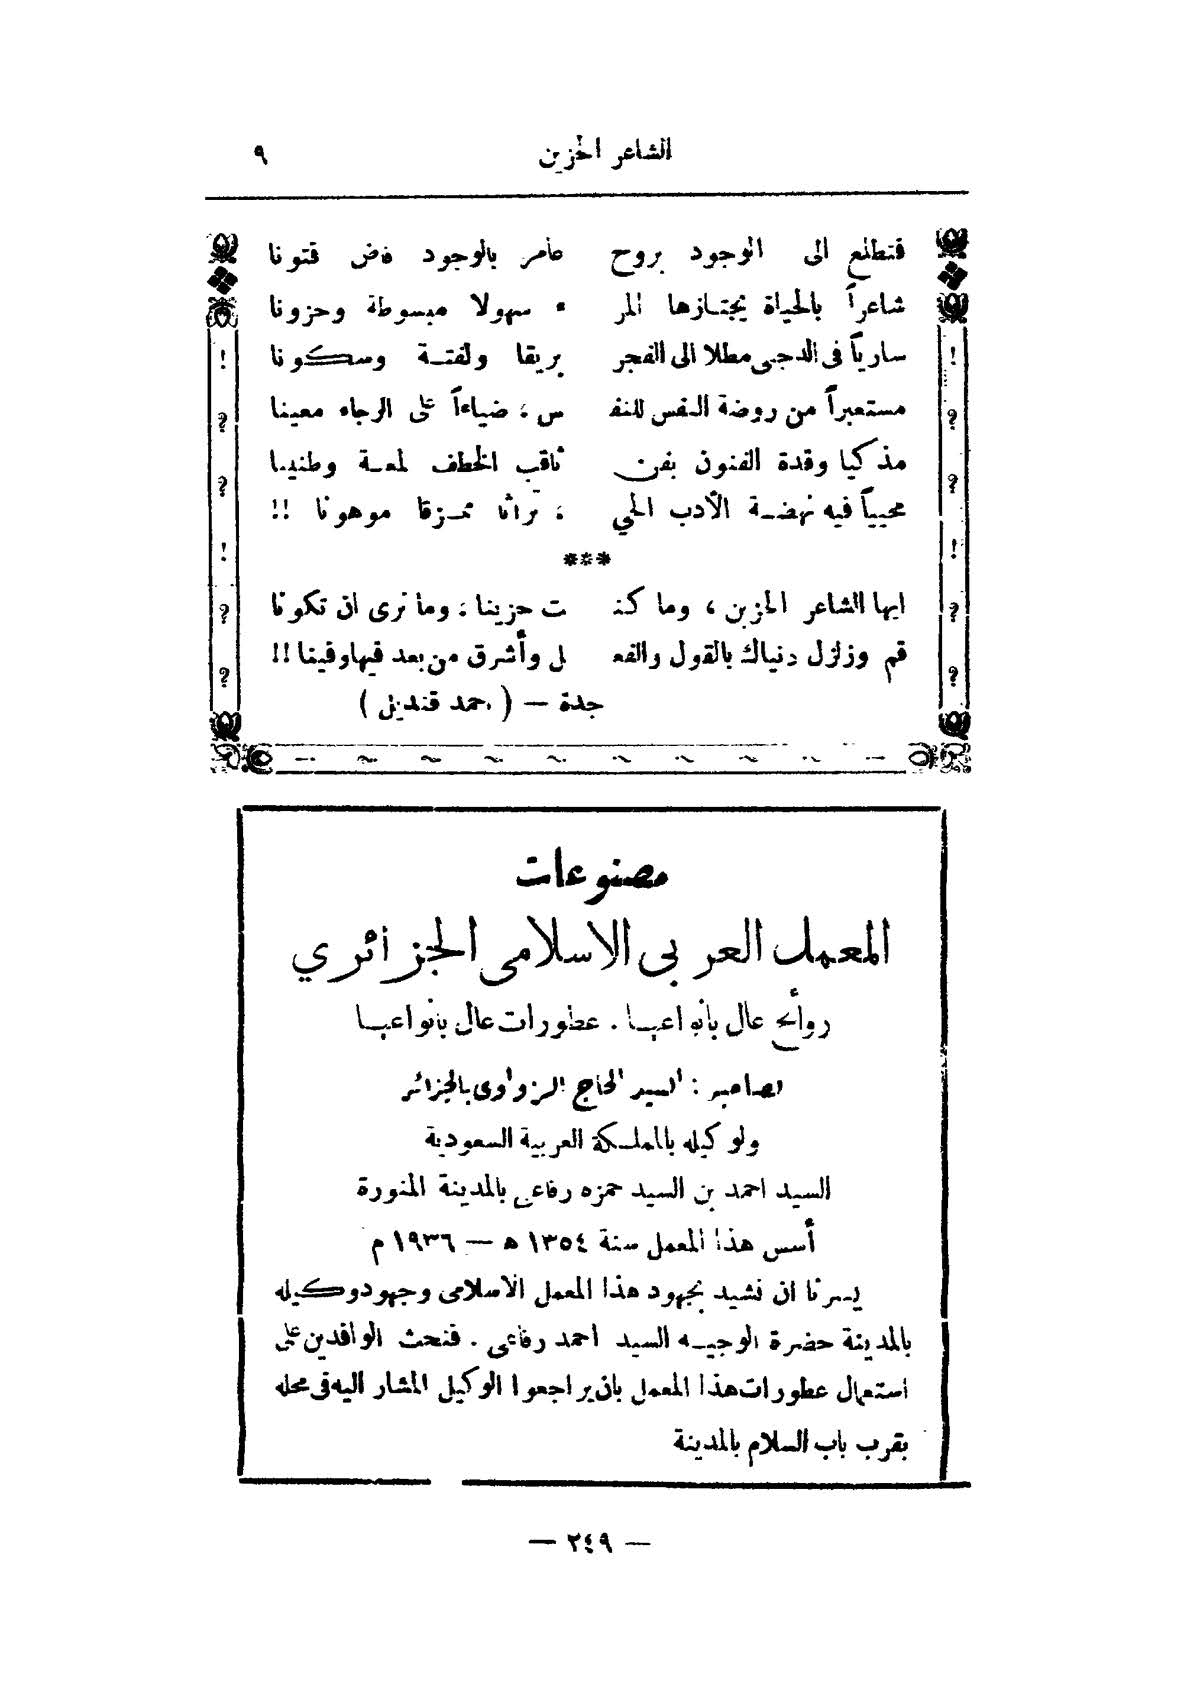 الشاعر الحزين ٩
فتطلع الى الوجود بروح عامر بالوجود فاض فتونا
شاعراً بالحياة يجتازها المر ء سهولا مبسوطة وحزونا
سارياً فى الدجى مطلا الى الفجر بريقا ولفتة وسكونا
مستعبراً من روضة النفس للنفـ س ، ضياءاً على الرجاء معينا
مذكيا وقدة الفنون بفن ثاقب الخطف لمعة وطنينا
محيياً فيه نهضة الأدب الحي ، تراثا ممزقا موهونا !!
***
ايها الشاعر الحزين ، وما كنـ ت حزينا ، وما نرى ان تكونا
قم وزلزل دنياك بالقول والفعـ ل وأشرق من بعد فيها وفينا !!
جدة — ( احمد قنديل )
مصنوعات
المعمل العربى الاسلامى الجزائري
روائح عال بأنواعها . عطورات عال بانواعها
لصاحبه : السيد الحاج الزواوى بالجزائر
ولوكيله بالمملكة العربية السعودية
السيد احمد بن السيد حمزه رفاعى بالمدينة المنورة
أسس هذا المعمل سنة ١٣٥٤ ه — ١٩٣٦ م
يسرنا ان نشيد بجهود هذا المعمل الاسلامى وجهود وكيله
بالمدينة حضرة الوجيه السيد احمد رفاعى . فنحث الوافدين على
استعمال عطورات هذا المعمل بان يراجعوا الوكيل المشار اليه فى محله
بقرب باب السلام بالمدينة
— ٢٤٩ —